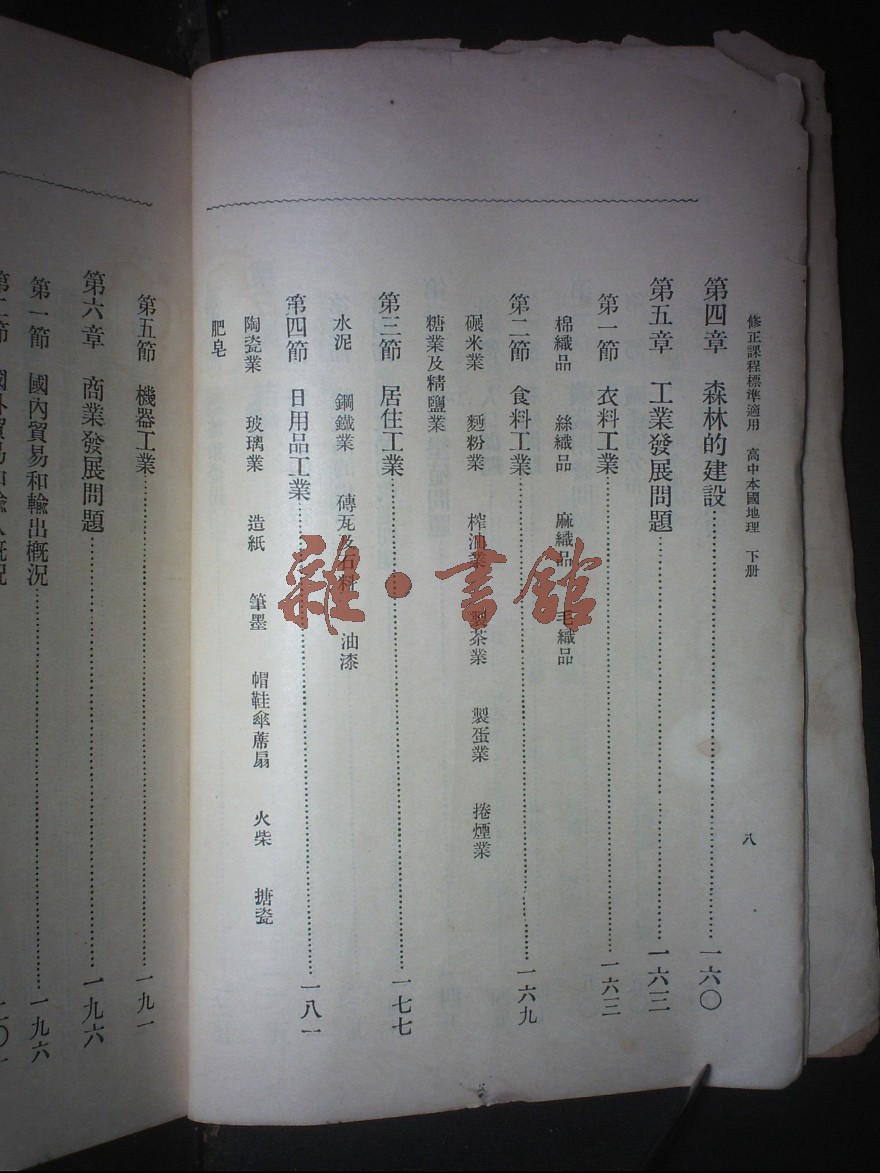 修正課程標準適用 高中本國地理 下册 八
第四章 森林的建設 一六〇
第五章 工業發展問題 一六三
第一節 衣料工業 一六三
棉織品 絲織品 麻織品 毛織品
第二節 食料工業 一六九
碾米業 麵粉業 榨油業 製茶業 製蛋業 捲煙業
糖業及精鹽業
第三節 居住工業 一七七
水泥 鋼鐵業 磚瓦及石料 油漆
第四節 日用品工業 一八一
陶瓷業 玻璃業 造紙 筆墨 帽鞋傘蓆扇 火柴 搪瓷
肥皂
第五節 機器工業 一九一
第六章 商業發展問題 一九六
第一節 國內貿易和輸出概況 一九六
第二節 國外貿易和輸入概況
雜·書館